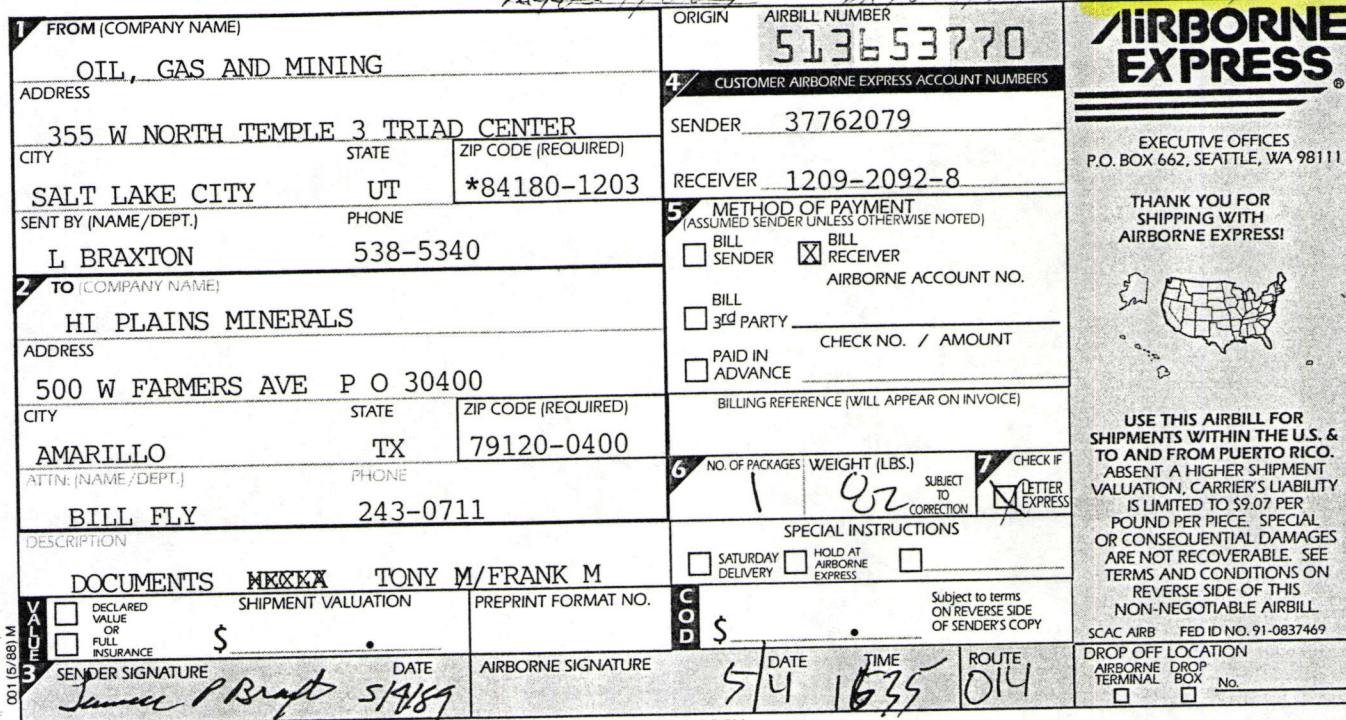 1 FROM (COMPANY NAME)
OIL, GAS AND MINING
ADDRESS
355 W NORTH TEMPLE 3 TRIAD CENTER
CITY STATE ZIP CODE (REQUIRED)
SALT LAKE CITY UT *84180-1203
SENT BY (NAME/DEPT.) PHONE
L BRAXTON 538-5340
2 TO (COMPANY NAME)
HI PLAINS MINERALS
ADDRESS
500 W FARMERS AVE P O 30400
CITY STATE ZIP CODE (REQUIRED)
AMARILLO TX 79120-0400
ATTN: (NAME/DEPT.) PHONE
BILL FLY 243-0711
DESCRIPTION
DOCUMENTS TONY M/FRANK M
VALUE
DECLARED VALUE
OR
FULL INSURANCE
SHIPMENT VALUATION
$ .
PREPRINT FORMAT NO.
3 SENDER SIGNATURE DATE
5/4/89
AIRBORNE SIGNATURE
001 (5/88) M
ORIGIN AIRBILL NUMBER
513653770
4 CUSTOMER AIRBORNE EXPRESS ACCOUNT NUMBERS
SENDER 37762079
RECEIVER 1209-2092-8
5 METHOD OF PAYMENT
(ASSUMED SENDER UNLESS OTHERWISE NOTED)
BILL SENDER X BILL RECEIVER
AIRBORNE ACCOUNT NO.
BILL 3rd PARTY
CHECK NO. / AMOUNT
PAID IN ADVANCE
BILLING REFERENCE (WILL APPEAR ON INVOICE)
6 NO. OF PACKAGES WEIGHT (LBS.)
1 SUBJECT TO CORRECTION
7 CHECK IF
X LETTER EXPRESS
SPECIAL INSTRUCTIONS
SATURDAY DELIVERY HOLD AT AIRBORNE EXPRESS
COD
$ .
Subject to terms
ON REVERSE SIDE
OF SENDER'S COPY
DATE TIME ROUTE
5/4 1635 014
AIRBORNE
EXPRESS®
EXECUTIVE OFFICES
P.O. BOX 662, SEATTLE, WA 98111
THANK YOU FOR
SHIPPING WITH
AIRBORNE EXPRESS!
USE THIS AIRBILL FOR
SHIPMENTS WITHIN THE U.S. &
TO AND FROM PUERTO RICO.
ABSENT A HIGHER SHIPMENT
VALUATION, CARRIER'S LIABILITY
IS LIMITED TO $9.07 PER
POUND PER PIECE. SPECIAL
OR CONSEQUENTIAL DAMAGES
ARE NOT RECOVERABLE. SEE
TERMS AND CONDITIONS ON
REVERSE SIDE OF THIS
NON-NEGOTIABLE AIRBILL
SCAC AIRB FED ID NO. 91-0837469
DROP OFF LOCATION
AIRBORNE TERMINAL DROP BOX No.